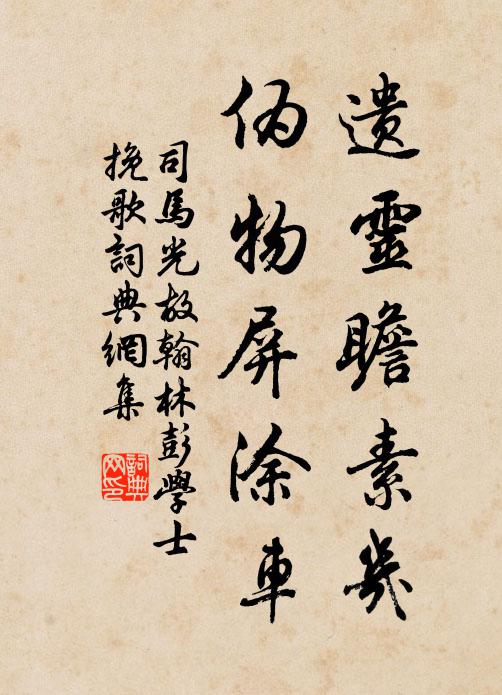 遗靈瞻素几
伪物屏涂車
司馬光故翰林彭學士
挽歌詞典網集
詞典网印